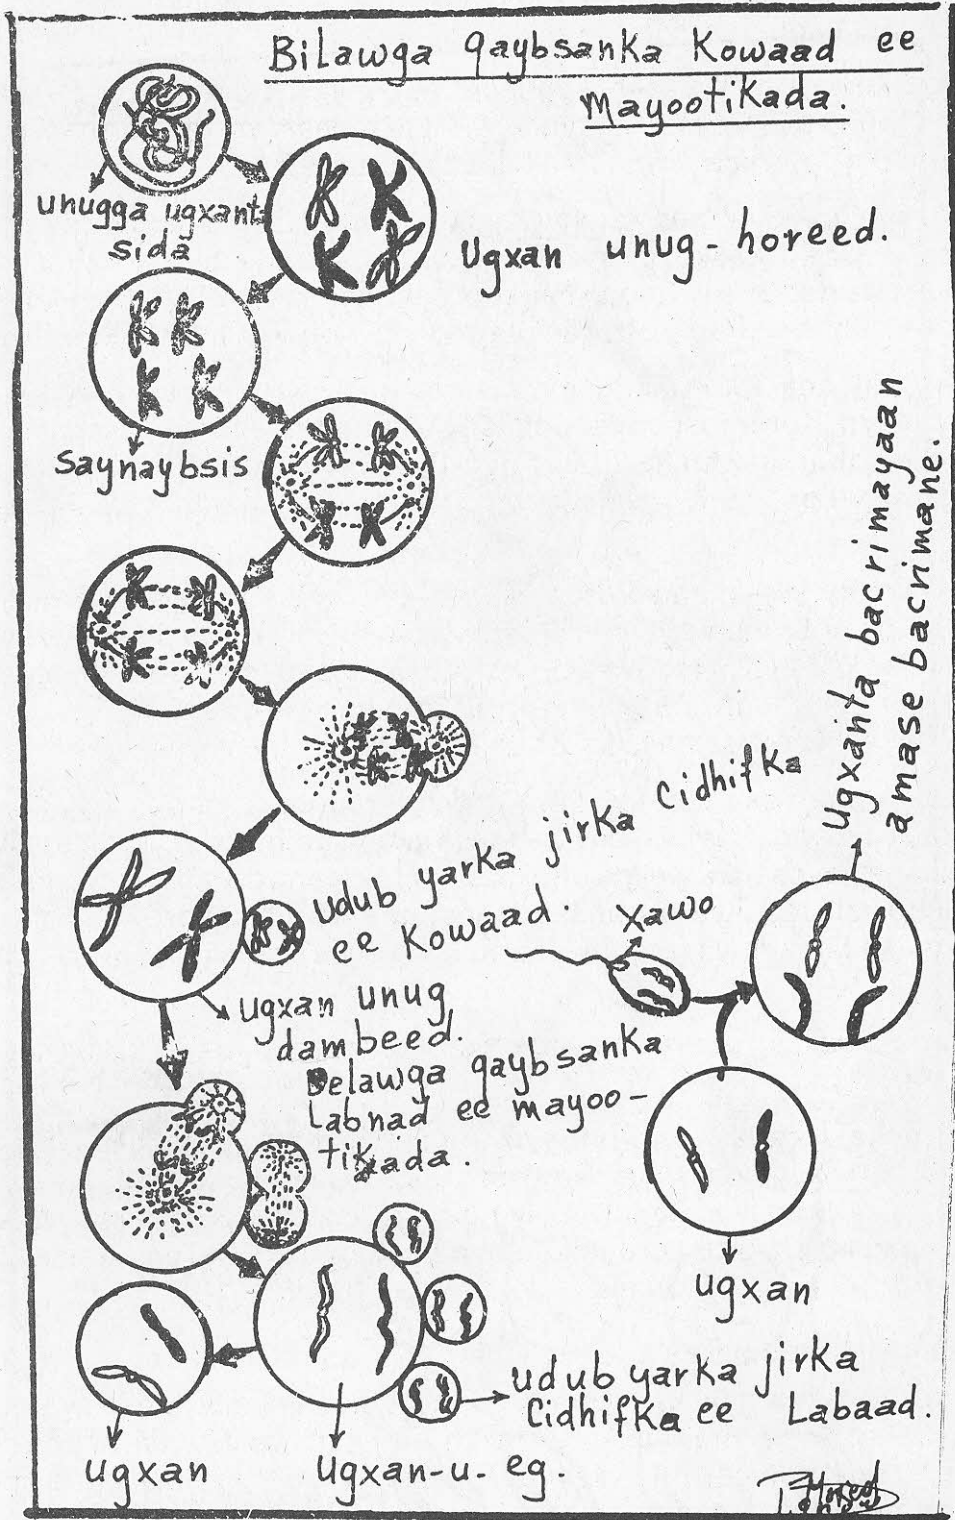 Bilawga qaybsanka Kowaad ee
Mayootikada.
unugga ugxant
sida
Ugxan unug-horeed.
Saynaybsis
Ugxanta bacrimayaan
amase bacrimane.
udub yarka jirka Cidhifka
ee Kowaad.
Xawo
ugxan unug
dambeed.
Belawga qaybsanka
Labnad ee mayoo-
tikada.
ugxan
udub yarka jirka
Cidhifka ee Labaad.
ugxan
ugxan-u-eg.